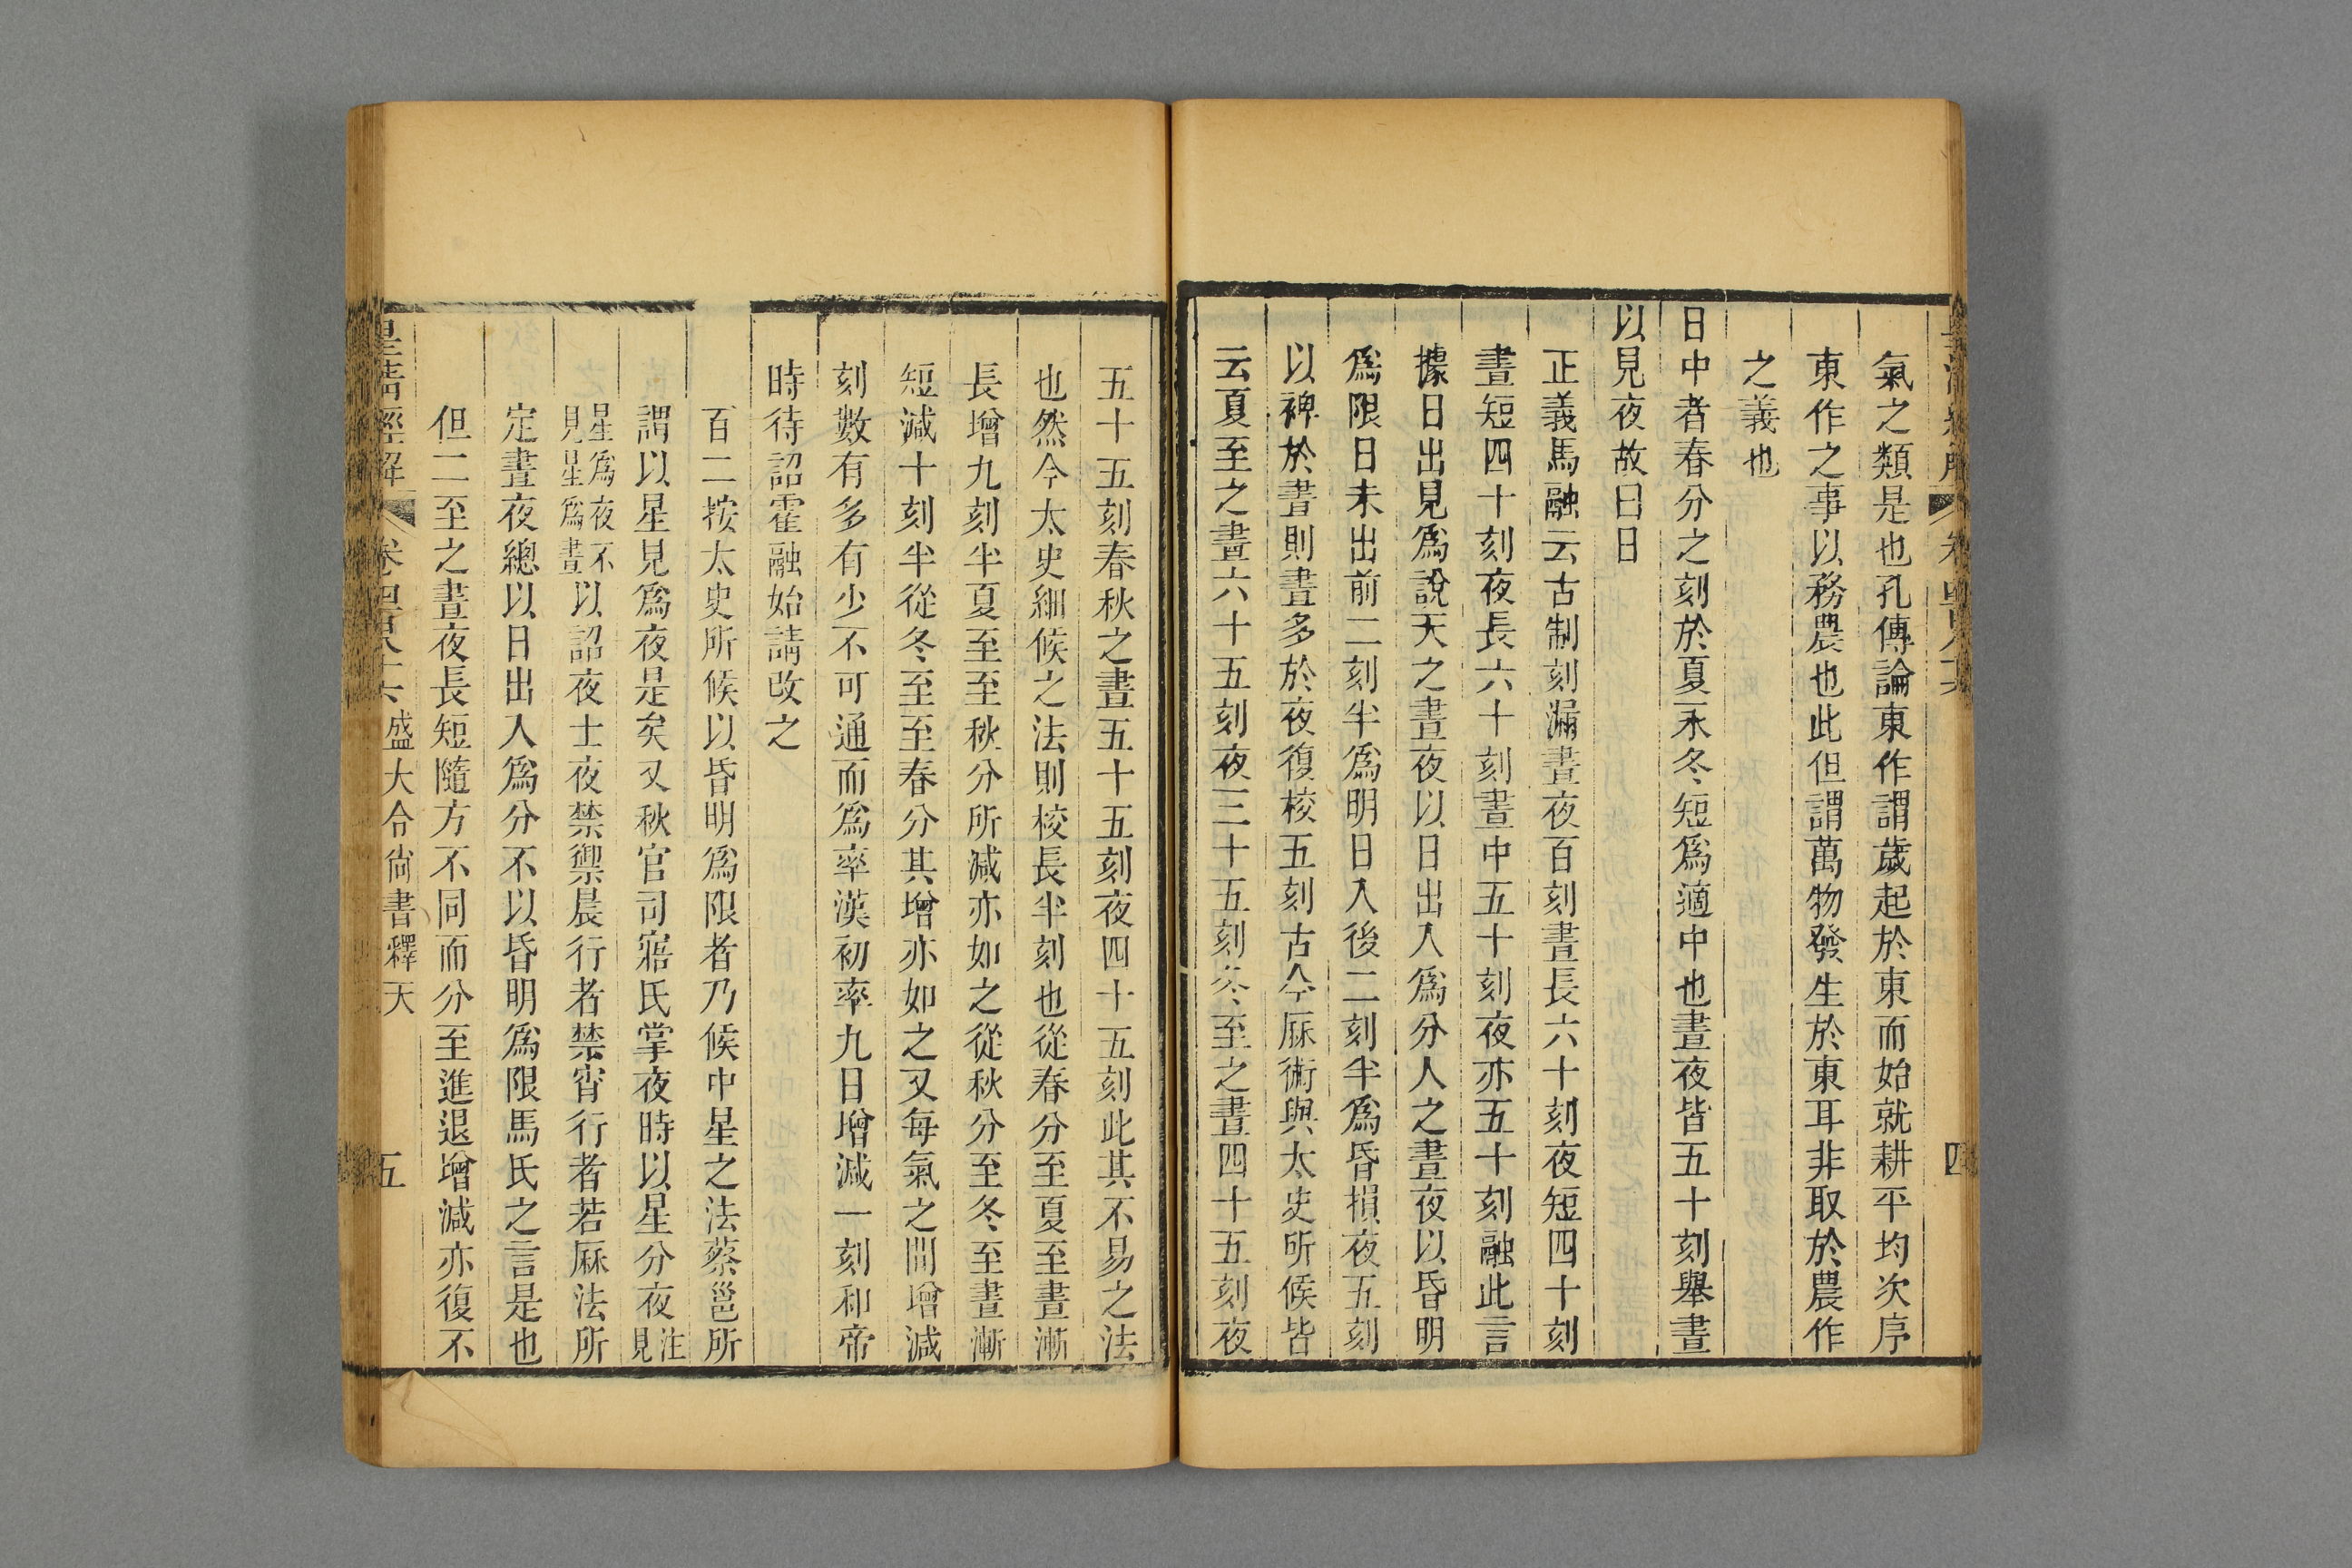 氣之類是也孔傳論東作謂歲起於東而始就耕平均次序
東作之事以務農也此但謂萬物發生於東耳非取於農作
之義也
日中者春分之刻於夏永冬短爲適中也晝夜皆五十刻舉晝
以見夜故曰日
正義馬融云古制刻漏晝夜百刻晝長六十刻夜短四十刻
晝短四十刻夜長六十刻晝中五十刻夜亦五十刻融此言
據日出見爲說天之晝夜以日出入爲分人之晝夜以昏明
爲限日未出前二刻半爲明日入後二刻半爲昏損夜五刻
以裨於晝則晝多於夜復校五刻古今厤術與太史所候皆
云夏至之晝六十五刻夜三十五刻冬至之晝四十五刻夜
四
五十五刻春秋之晝五十五刻夜四十五刻此其不易之法
也然今太史細候之法則校長半刻也從春分至夏至晝漸
長增九刻半夏至至秋分所減亦如之從秋分至冬至晝漸
短減十刻半從冬至至春分其增亦如之又每氣之間增減
刻數有多有少不可通而爲率漢初率九日增減一刻和帝
時待詔霍融始請改之
百二按太史所候以昏明爲限者乃候中星之法蔡邕所
謂以星見爲夜是矣又秋官司寤氏掌夜時以星分夜注見
星爲夜不見星爲晝以詔夜士夜禁禦晨行者禁宵行者若厤法所
定晝夜總以日出入爲分不以昏明爲限馬氏之言是也
但二至之晝夜長短隨方不同而分至進退增減亦復不
皇清經解 卷四百八十六 盛大令尙書釋天 五